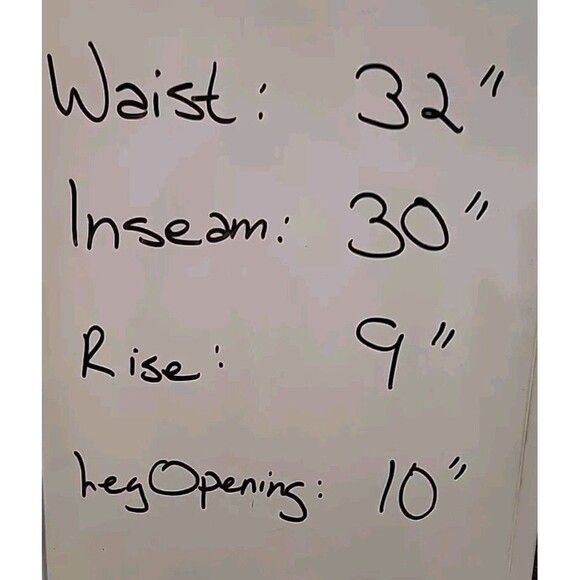 Waist: 32"
Inseam: 30"
Rise: 9"
Leg Opening: 10"